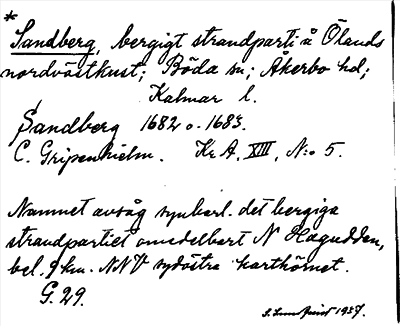 *
Sandberg, bergigt strandparti å Ölands
nordvästkust; Böda sn; Åkerbo hd;
Kalmar l.
Sandberg 1682 o. 1683.
C. Gripenhielm. Kr A, XIII, N:o 5.
Namnet avsåg synbarl. det bergiga
strandpartiet omedelbart N Hagudden,
bel. 9 km. NNV sydöstra karthörnet.
G. 29.
1937.